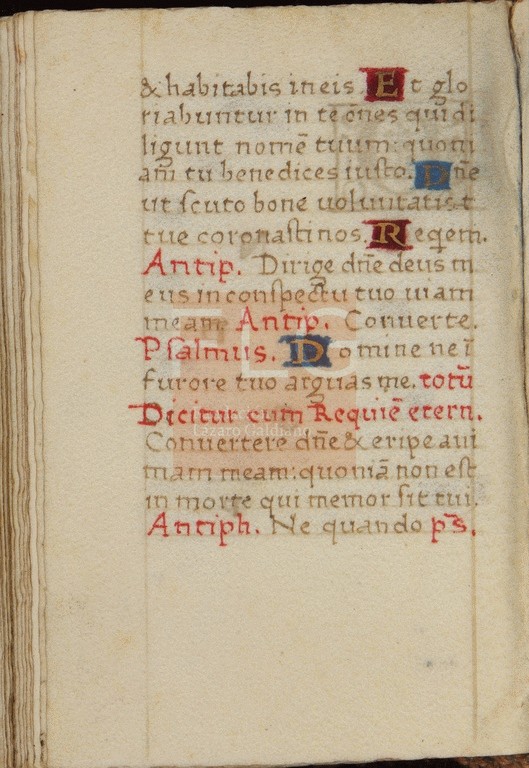 & habitabis in eis. Et glo
riabuntur in te oēs qui di
ligunt nomē tuum: quoni
am tu benedices iusto. Dn̄e
ut scuto bone uoluntatis t
tue coronasti nos. Requem.
Antip. Dirige dn̄e deus m
eus in conspectu tuo uiam
meam. Antip. Conuerte.
Psalmus. Domine ne ī
furore tuo arguas me. totū
Dicitur cum Requiē etern.
Conuertere dn̄e & eripe ani
mam meam: quoniā non est
in morte qui memor sit tui.
Antiph. Ne quando ps̄.
FLG
Lázaro Galdiano